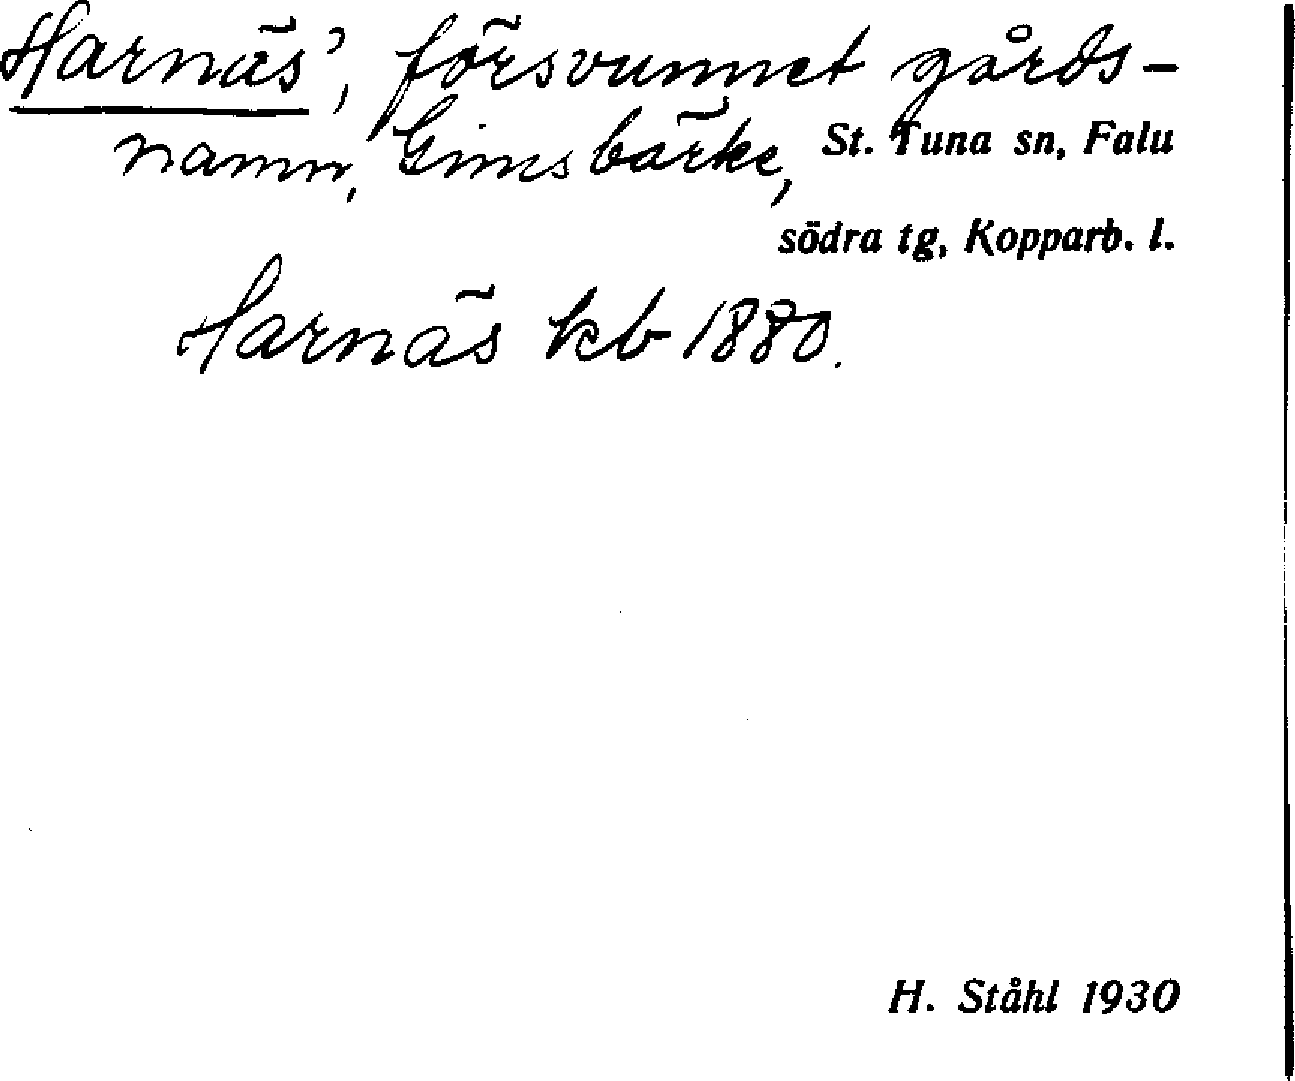 Harnäs', försvunnet gårds-
namn, Gimsbärke, St. Tuna sn, Falu
södra tg, Kopparb. l.
Harnäs kb 1880.
H. Ståhl 1930